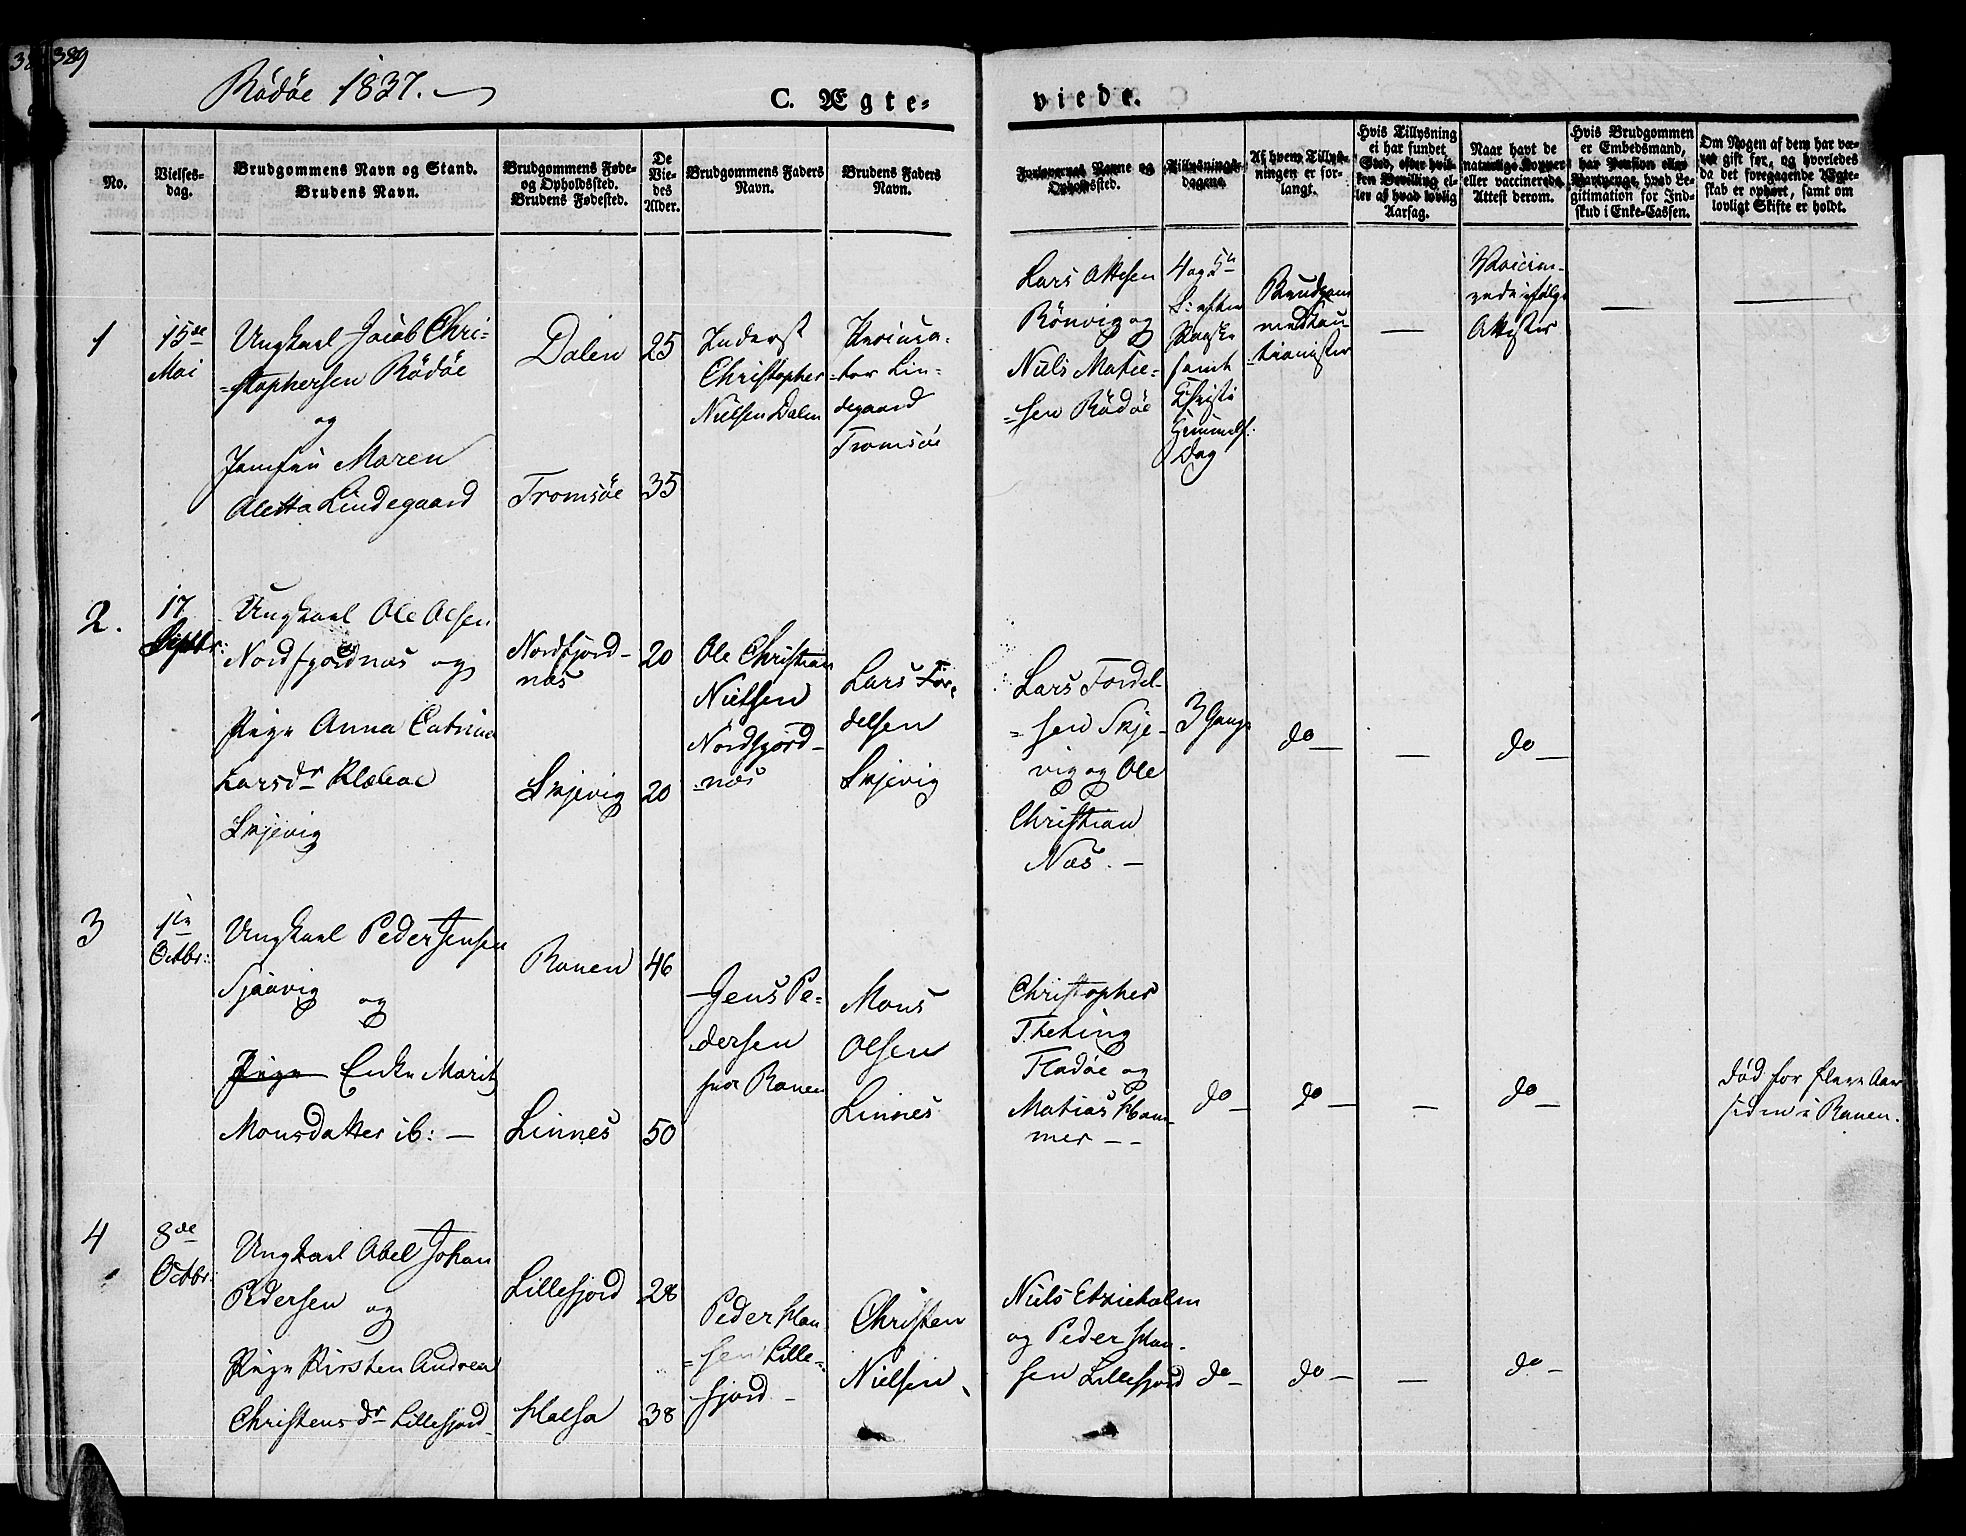 389
Rödöe 1837.
C. Ægte-
viede.
No.
Vielses-
dag.
Brudgommens Navn og Stand.
Brudens Navn.
Brudgommens Føde-
og Opholdssted.
Brudens Fødested.
De
Vie-
des
Alder.
Brudgommens Faders
Navn.
Brudens Faders
Navn.
Forlovernes Navne og
Opholdssted.
Tillysnings-
dagene.
Af hvem Tillys-
ningen er for-
langt.
Hvis Tillysning
ei har fundet
Sted, efter hvil-
ken Bevilling el-
ler af hvad lovlig
Aarsag.
Naar havt de
naturlige Kopper
eller vaccinerede,
Attest derom.
Hvis Brudgommen
er Embedsmand,
har Pension eller
Vartpenge, hvad Le-
gitimation for Ind-
skud i Enke-Cassen.
Om Nogen af dem har væ-
ret gift før, og hvorledes
da det foregaaende Ægte-
skab er ophørt, samt om
lovligt Skifte er holdt.
1
15de
Mai
Ungkarl Jacob Chri-
=stophersen Rödöe
og
Jomfru Maren
Aletta Lindegaard
Dalen
Tromsöe
25
35
Inderst
Christopher
Nielsen Dalen
Procura-
-tor Lin-
degaard
Tromsöe
Lars Ottesen
Rönvig og
Niels Matie-
=sen Rödöe
4 og 5te
S: efter
Paaske
samt
Christi
Himmelf:
Dag
Brudgom
med Kau-
-tionister
—
Vaccine-
rede ifølge
Attester
—
—
2.
17
Septbr:
Ungkarl Ole Olsen
Nordfjordnæs og
Pige Anna Catrina
Larsdr Klæboe
Skjevig
Nordfjord-
næs
Skjevig
20
20
Ole Christian
Nielsen
Nordfjord-
-næs
Lars For-
delsen
Skjevig
Lars Fordel-
=sen Skje-
vig og Ole
Christian
Næs. —
3 Gange
do —
—
do —
3
1te
Octbr:
Ungkarl Peder Jensen
Sjaavig og
Pige Enke Marit
Monsdatter ib: —
Ranen
Linnes
46
50
Jens Pe-
dersen
Ranen
Mons
Olsen
Linnes
Christopher
Fladöe og
Matias Ham-
mer — -
do —
do —
—
do —
død for flere Aar
siden i Ranen.
4
8de
Octbr:
Ungkarl Abel Johan
Pedersen og
Pige Kirsten Andrea
Christensdr Lillefjord
Lillefjord
Halsa
28
38
Peder Han
=sen Lille-
fjord —
Christen
Nielsen
Niels
og Peder Han-
sen Lillefjord
do —
do —
—
do —